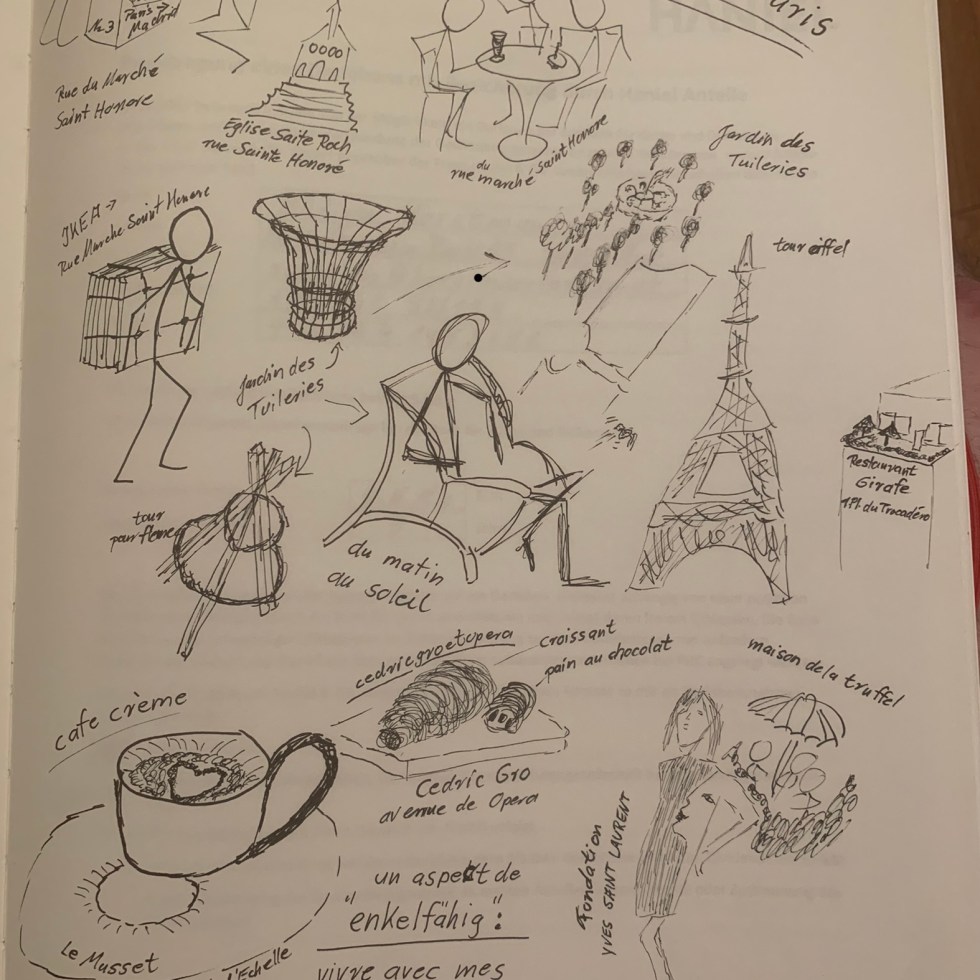 N.3 Paris →
Madrid
Rue du Marché
Saint Honore
Eglise Saite Roch
rue Sainte Honoré
du
rue marché Saint Honore
Jardin des
Tuileries
IKEA →
Rue Marche Saint Honore
tour eiffel
Jardin des
Tuileries
Restaurant
Girafe
1 Pl. du Trocadéro
tour
pour flemme
du matin
au soleil
cedricgroetopera
croissant
pain au chocolat
maison de la truffel
cafe crème
Cedric Gro
avenue de Opera
Fondation
YVES SAINT LAURENT
un aspekt de
"enkelfähig":
vivre avec mes
Le Musset
l'Echelle